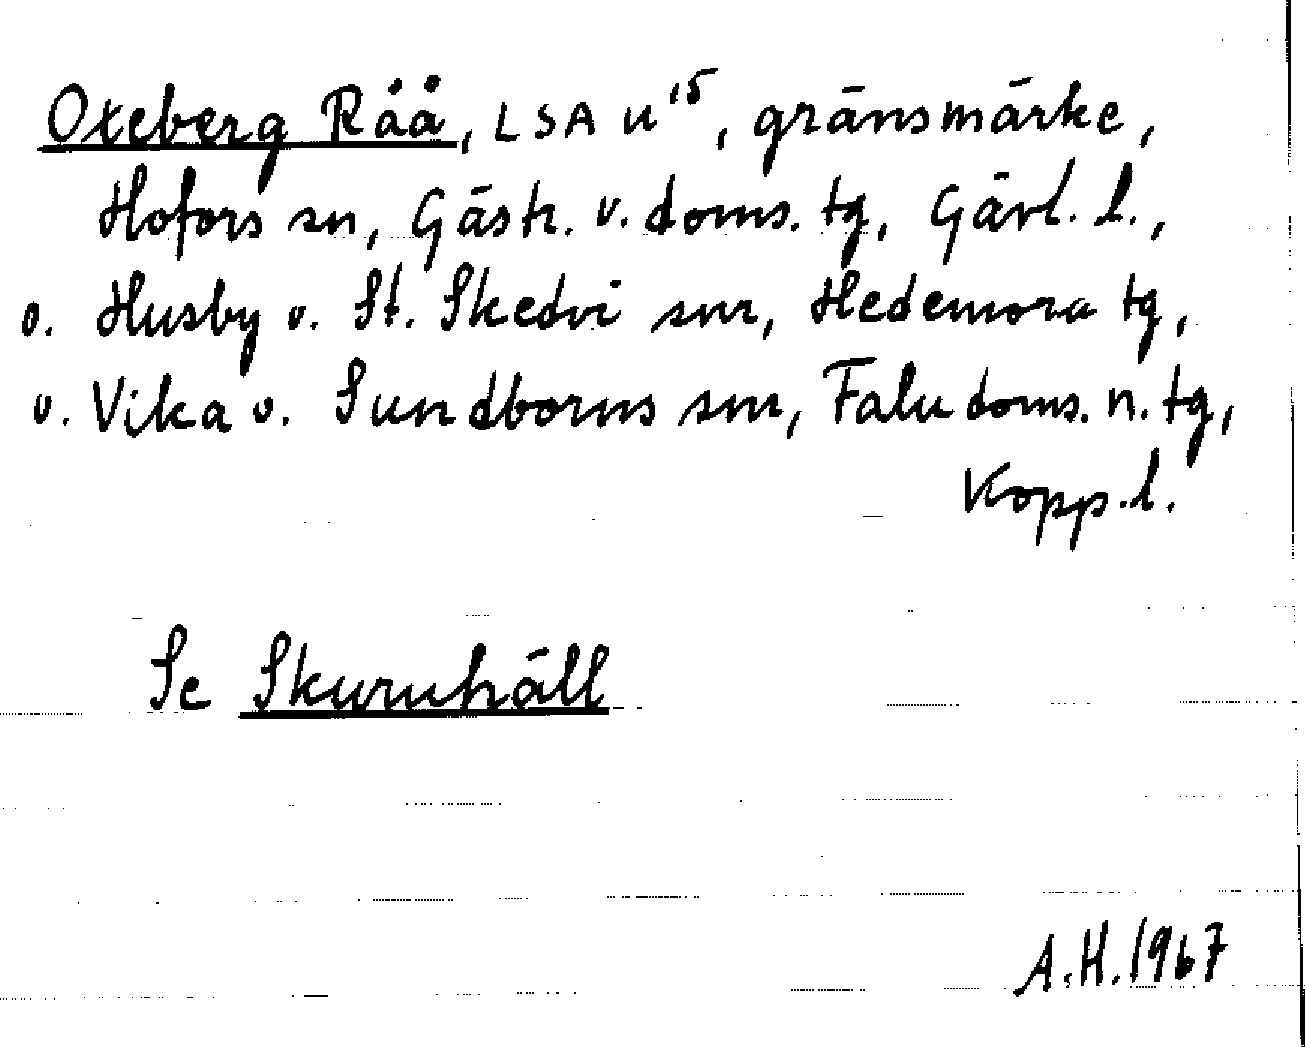 Oxeberg Råå, LSA U¹⁵, gränsmärke,
Hofors sn, Gästr. v. doms. tg, Gävl. l.,
o. Husby o. St. Skedvi snr, Hedemora tg,
o. Vika o. Sundborns snr, Falu doms. n. tg,
Kopp. l.
Se Skuruhäll
A.H. 1967